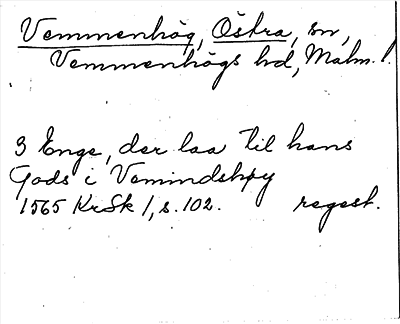 Vemmenhög, Östra, sn,
Vemmenhögs hd, Malm. l.
3 Enge, der laa til hans
Gods i Vemindshøy
1565 KrSk 1, s. 102. regest.